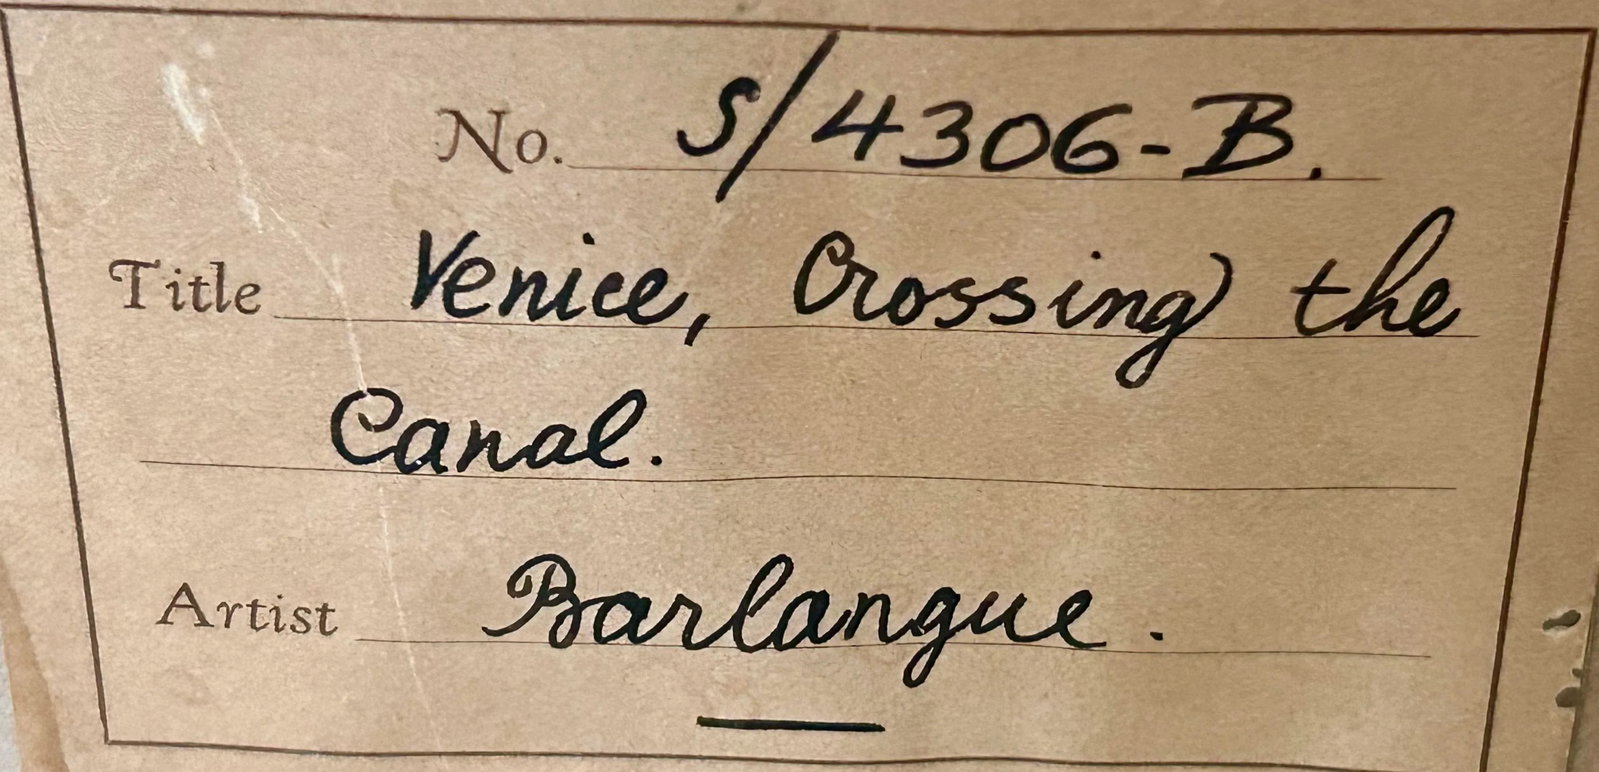 No. S/4306-B.
Title Venice, Crossing the
Canal.
Artist Barlangue.